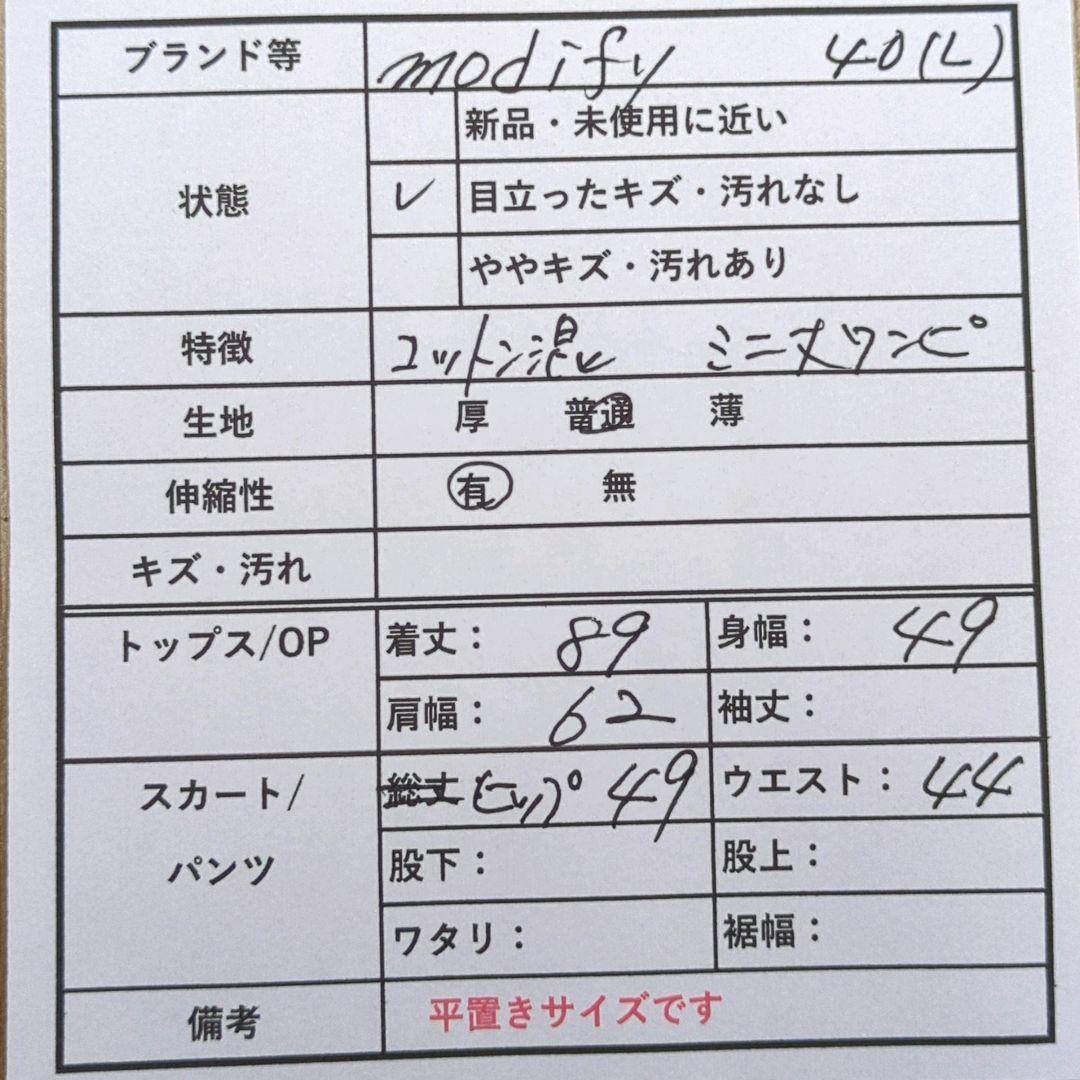 ブランド等 modify 40(L)
状態
新品・未使用に近い
✓ 目立ったキズ・汚れなし
ややキズ・汚れあり
特徴 コットン混 ミニ丈ワンピ
生地 厚 普通 薄
伸縮性 有 無
キズ・汚れ
トップス/OP 着丈： 89 身幅： 49
肩幅： 62 袖丈：
スカート/ 総丈 ヒップ 49 ウエスト： 44
パンツ 股下： 股上：
ワタリ： 裾幅：
備考 平置きサイズです